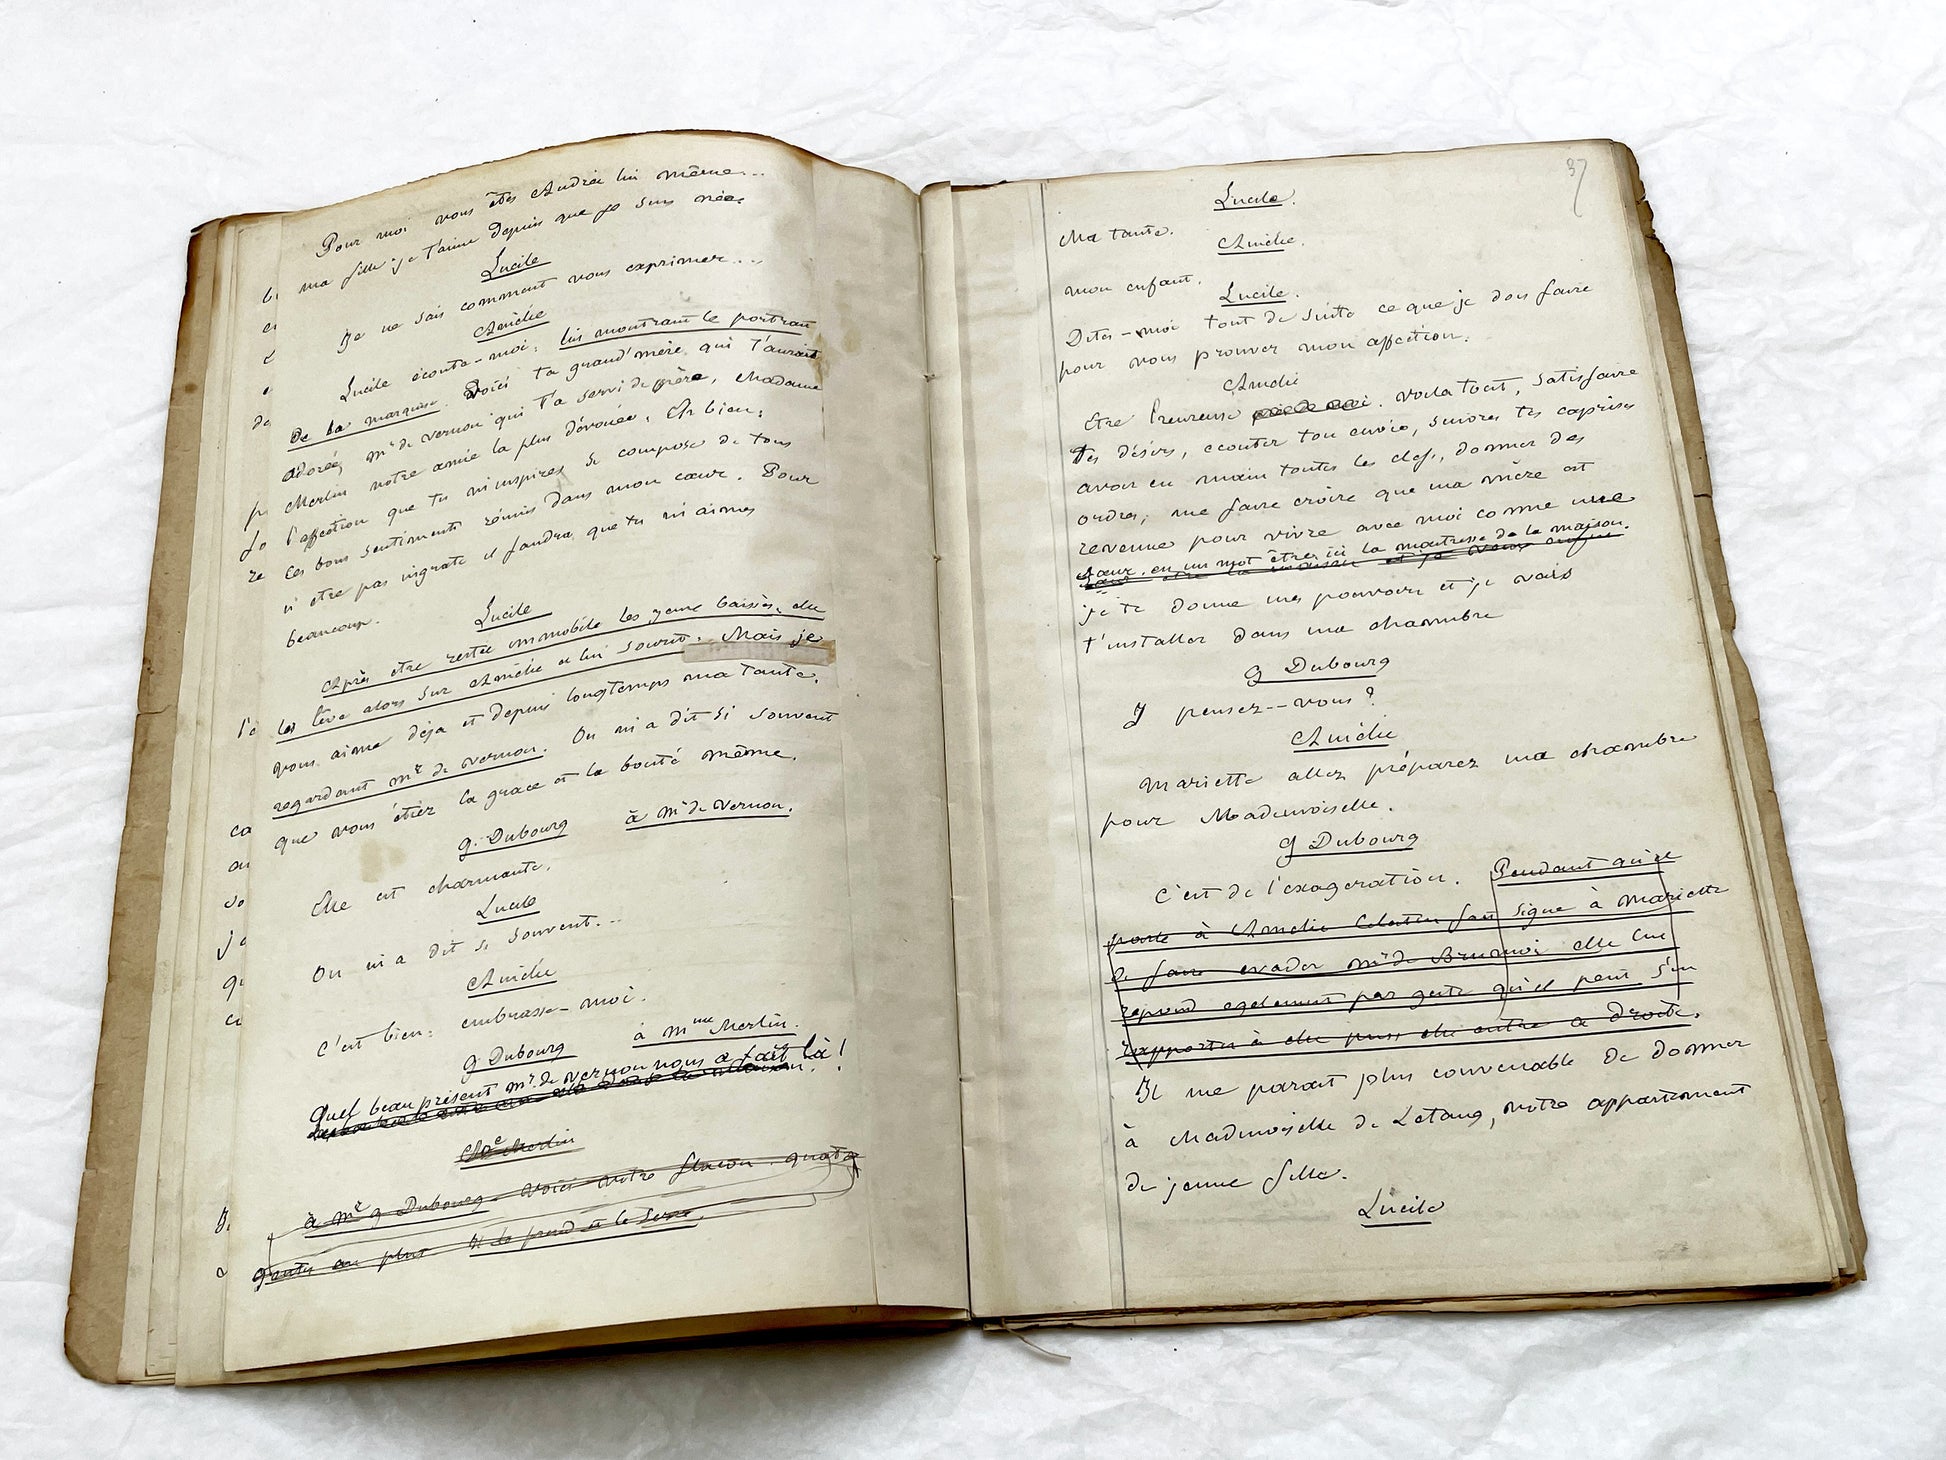 Pour moi vous êtes Andrée lui même...
ma fille je t'aime depuis que je suis née
Lucile
Je ne sais comment vous exprimer...
Amélie
Lucile écoute-moi: lui montrant le portrait
de la marquise. Voici ta grand'mère qui t'aurait
adorée, Mr de Vernon qui t'a servi de père, Madame
Merlin notre amie la plus dévouée, Eh bien:
l'affection que tu m'inspires se compose de tous
ces bons sentiments réunis dans mon cœur. Pour
n'être pas ingrate il faudra que tu m'aimes
beaucoup.
Lucile
Après être restée immobile les yeux baissés, elle
les lève alors sur Amélie et lui sourit. Mais je
vous aime déja et depuis longtemps ma tante.
regardant Mr de Vernon. On m'a dit si souvent
que vous étiez la grace et la bonté même.
g. Dubourg à Mr de Vernon.
Elle est charmante.
Lucile
On m'a dit si souvent...
Amélie
C'est bien: embrasse-moi.
g. Dubourg à Mme Merlin.
Quel beau présent Mr. de Vernon nous a fait là!
Merlin
à Mr g Dubourg Voici votre flacon
gouttes au plus Il le prend et le serre.
37
Lucile.
Ma tante.
Amélie.
mon enfant.
Lucile.
Dites-moi tout de suite ce que je dois faire
pour vous prouver mon affection.
Amélie
Etre heureuse. voila tout, satisfaire
tes désirs, écouter ton envie, suivre tes caprices
avoir en main toutes les clefs, donner des
ordres, me faire croire que ma mère est
revenue pour vivre avec moi comme une
sœur. en un mot être ici la maitresse de la maison.
je te donne mes pouvoirs et je vais
t'installer dans ma chambre
g Dubourg
Y pensez--vous?
Amélie
Mariette allez préparez ma chambre
pour Mademoiselle.
g Dubourg
C'est de l'exagération. Pendant qu'il
parle à Amélie fait signe à Mariette
de faire évader Mr de Brunoi elle lui
répond également par geste qu'il peut s'en
rapporter à elle puis elle entre à droite.
Il me parait plus convenable de donner
à Mademoiselle de Letang, votre appartement
de jeune fille.
Lucile